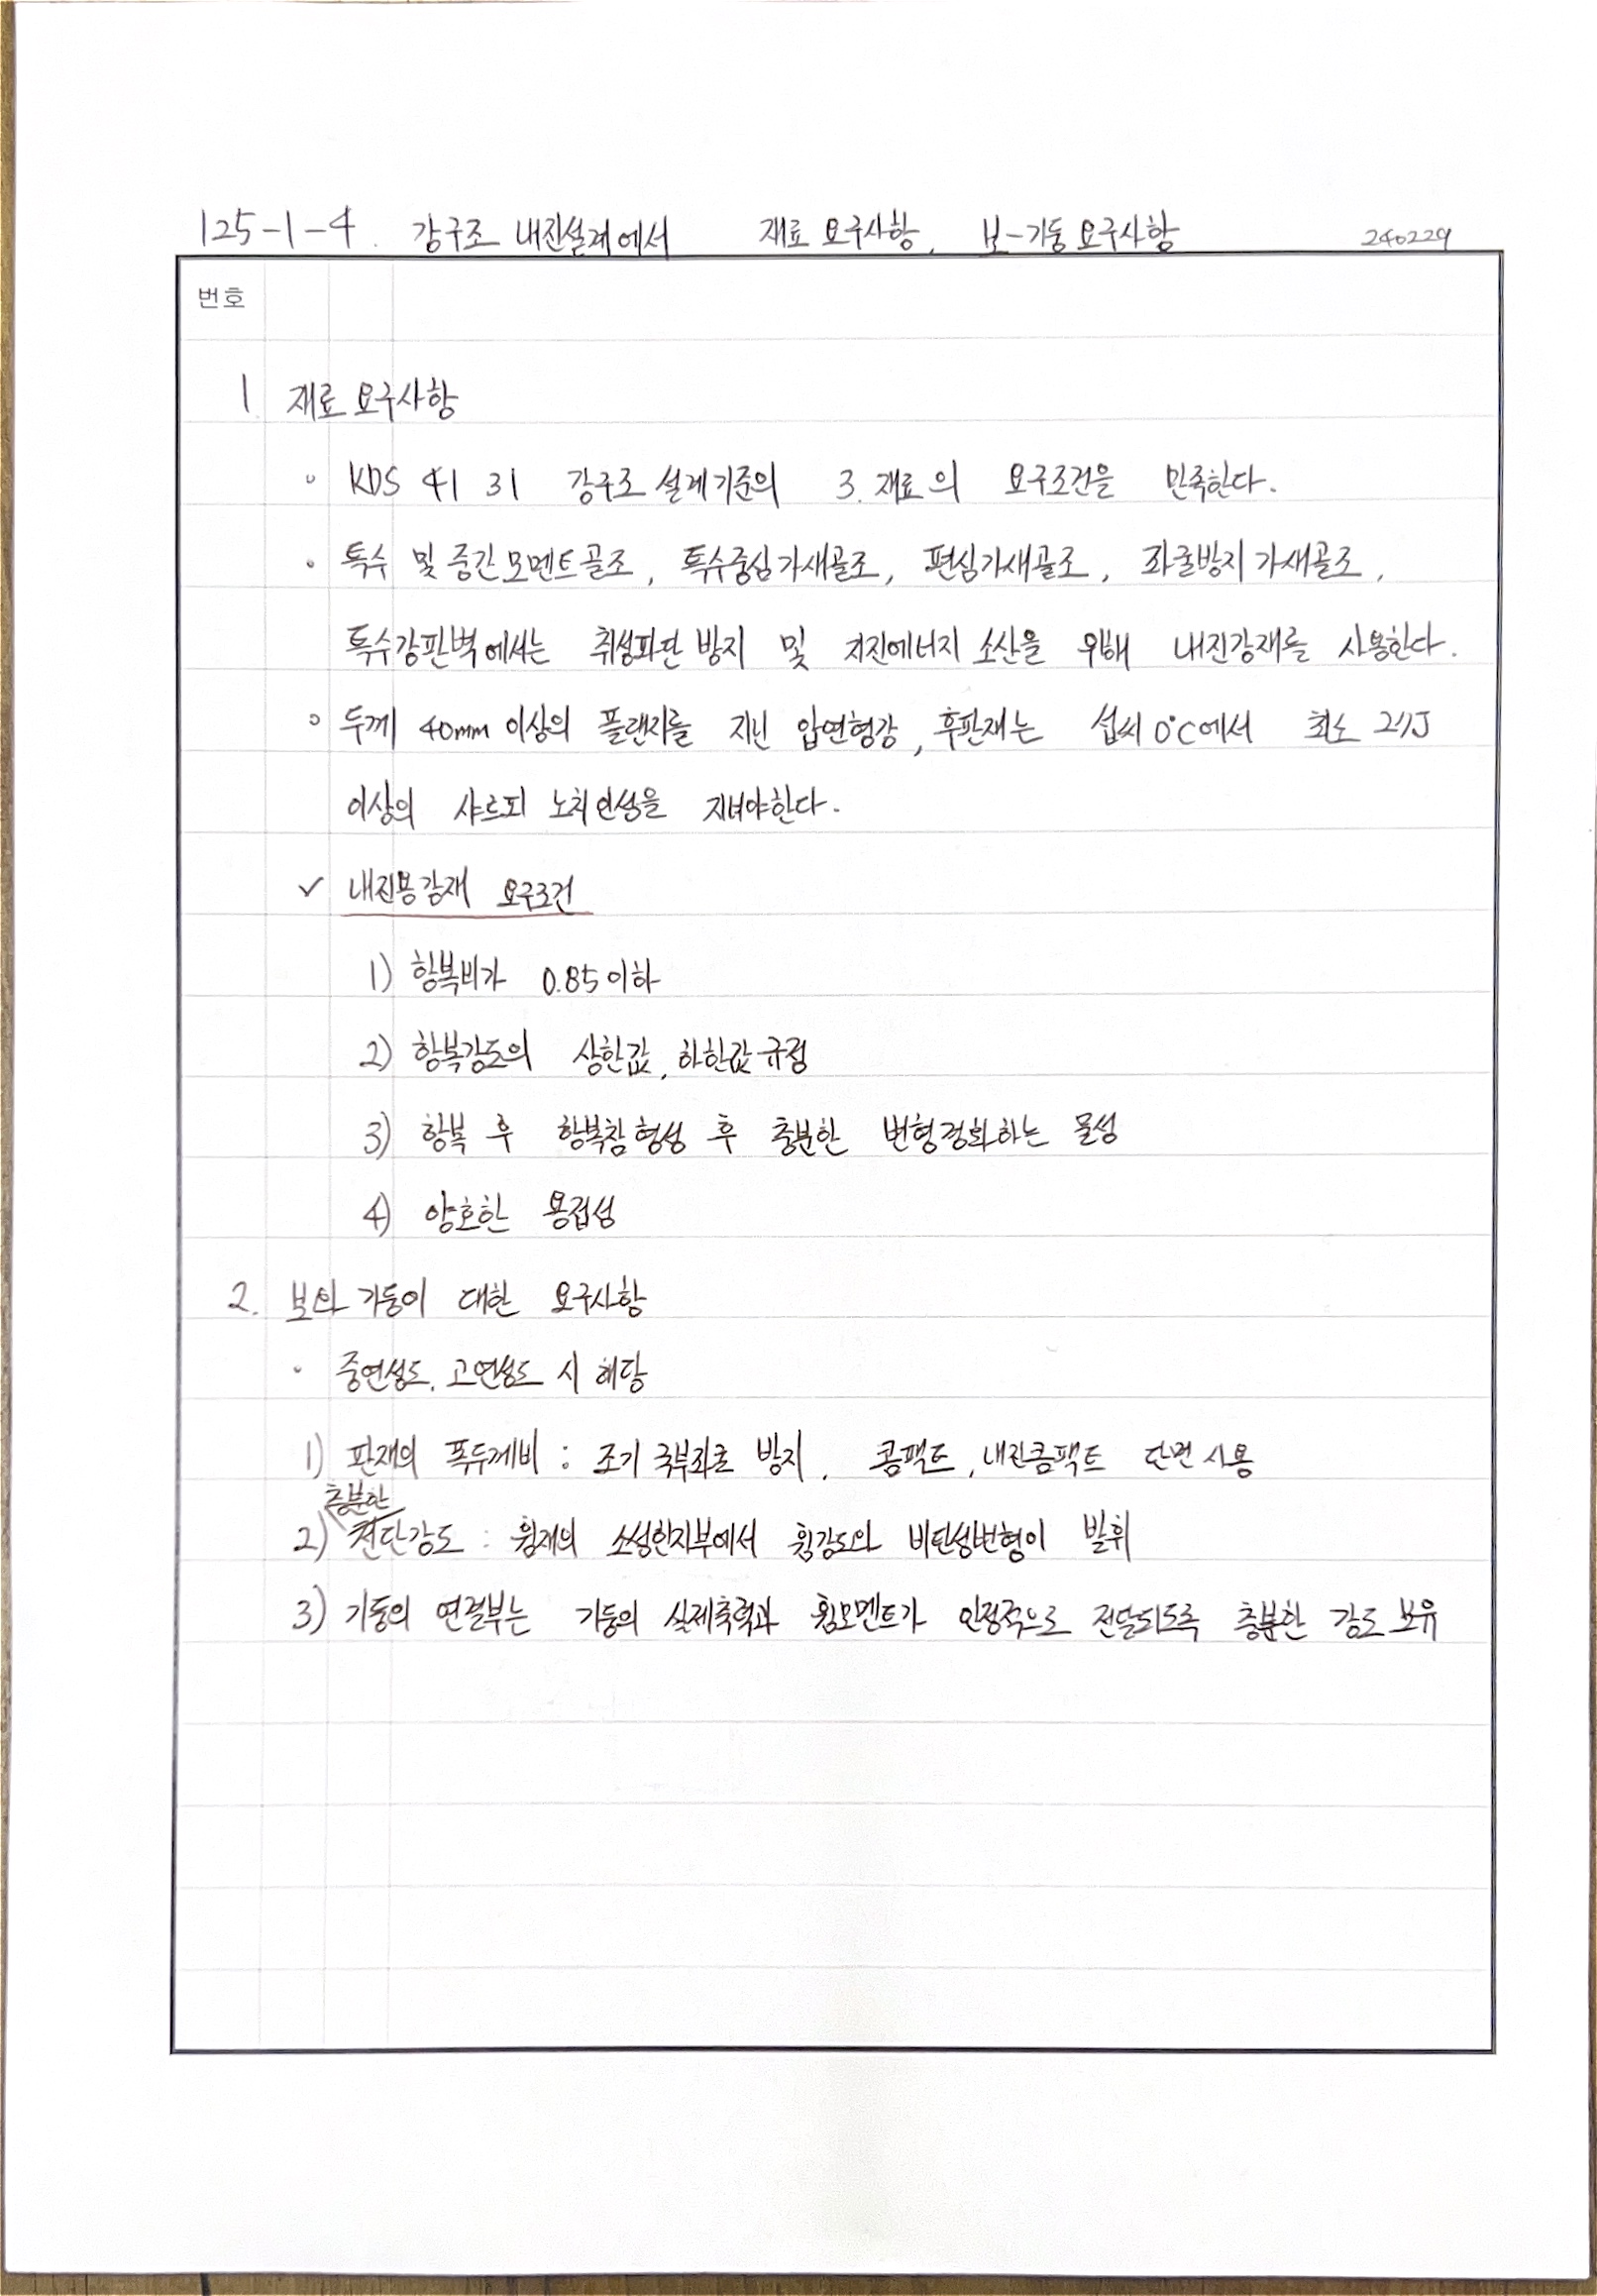 125-1-4. 강구조 내진설계에서 재료 요구사항, 보-기둥 요구사항 240229
번호
1. 재료 요구사항
◦ KDS 41 31 강구조 설계기준의 3. 재료의 요구조건을 만족한다.
◦ 특수 및 중간모멘트골조, 특수중심가새골조, 편심가새골조, 좌굴방지가새골조,
특수강판벽에서는 취성파단 방지 및 지진에너지 소산을 위해 내진강재를 사용한다.
◦ 두께 40mm 이상의 플랜지를 지닌 압연형강, 후판재는 섭씨 0℃에서 최소 27J
이상의 샤르피 노치인성을 지녀야한다.
✓ 내진용강재 요구조건
1) 항복비가 0.85 이하
2) 항복강도의 상한값, 하한값 규정
3) 항복 후 항복참 형성 후 충분한 변형경화하는 물성
4) 양호한 용접성
2. 보와 기둥이 대한 요구사항
· 중연성도, 고연성도 시 해당
1) 판재의 폭두께비 : 조기 국부좌굴 방지, 콤팩트, 내진콤팩트 단면 사용
충분한
2) 전단강도 : 휨재의 소성힌지부에서 휨강도와 비탄성변형이 발휘
3) 기둥의 연결부는 기둥의 실제축력과 휨모멘트가 안정적으로 전달되도록 충분한 강도 보유